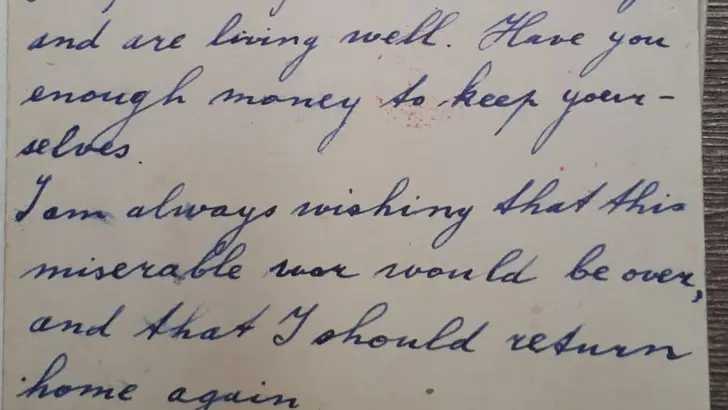 and are living well. Have you
enough money to keep your-
selves.
I am always wishing that this
miserable war would be over,
and that I should return
home again